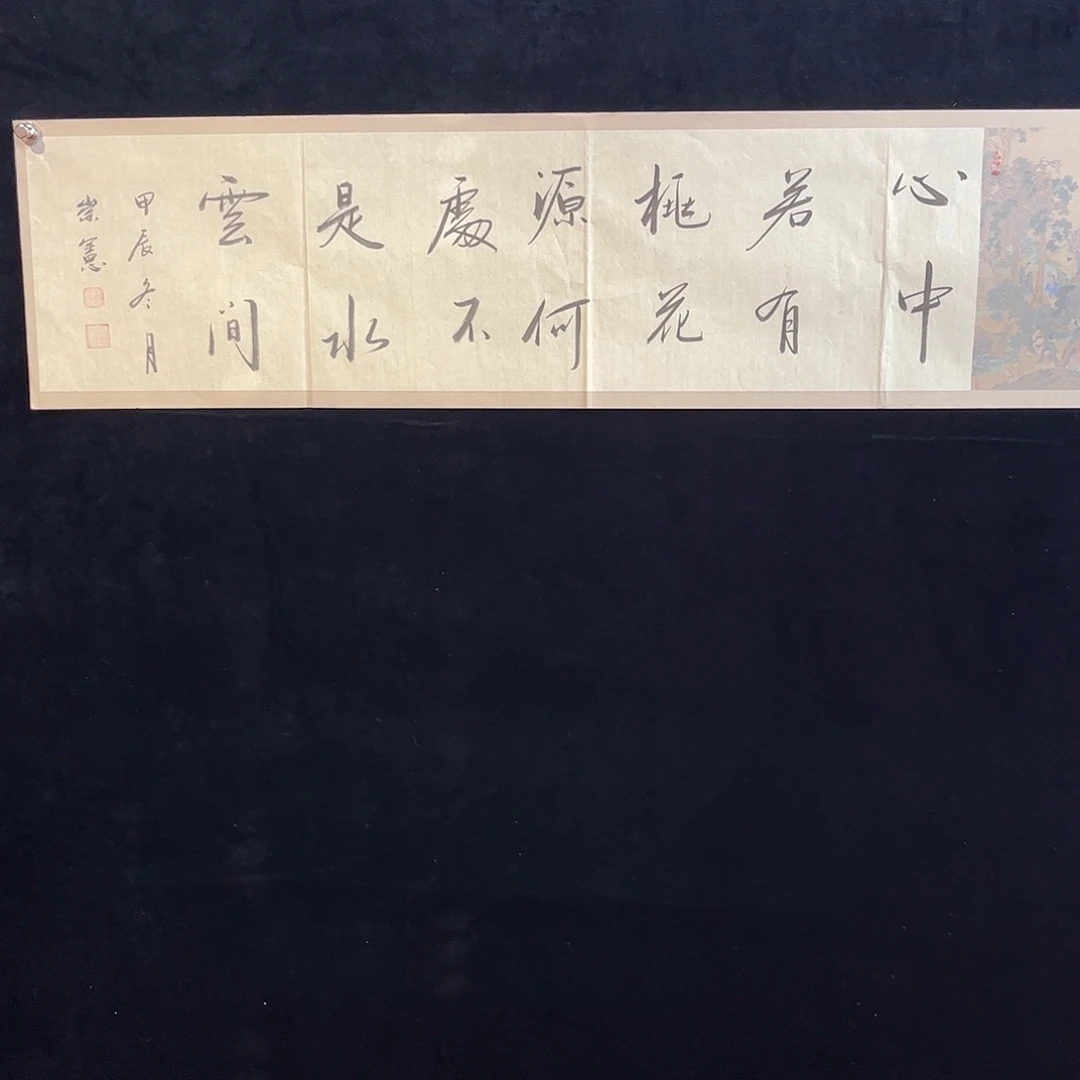 心中
若有
桃花
源何
處不
是水
雲間
甲辰冬月
崇憲